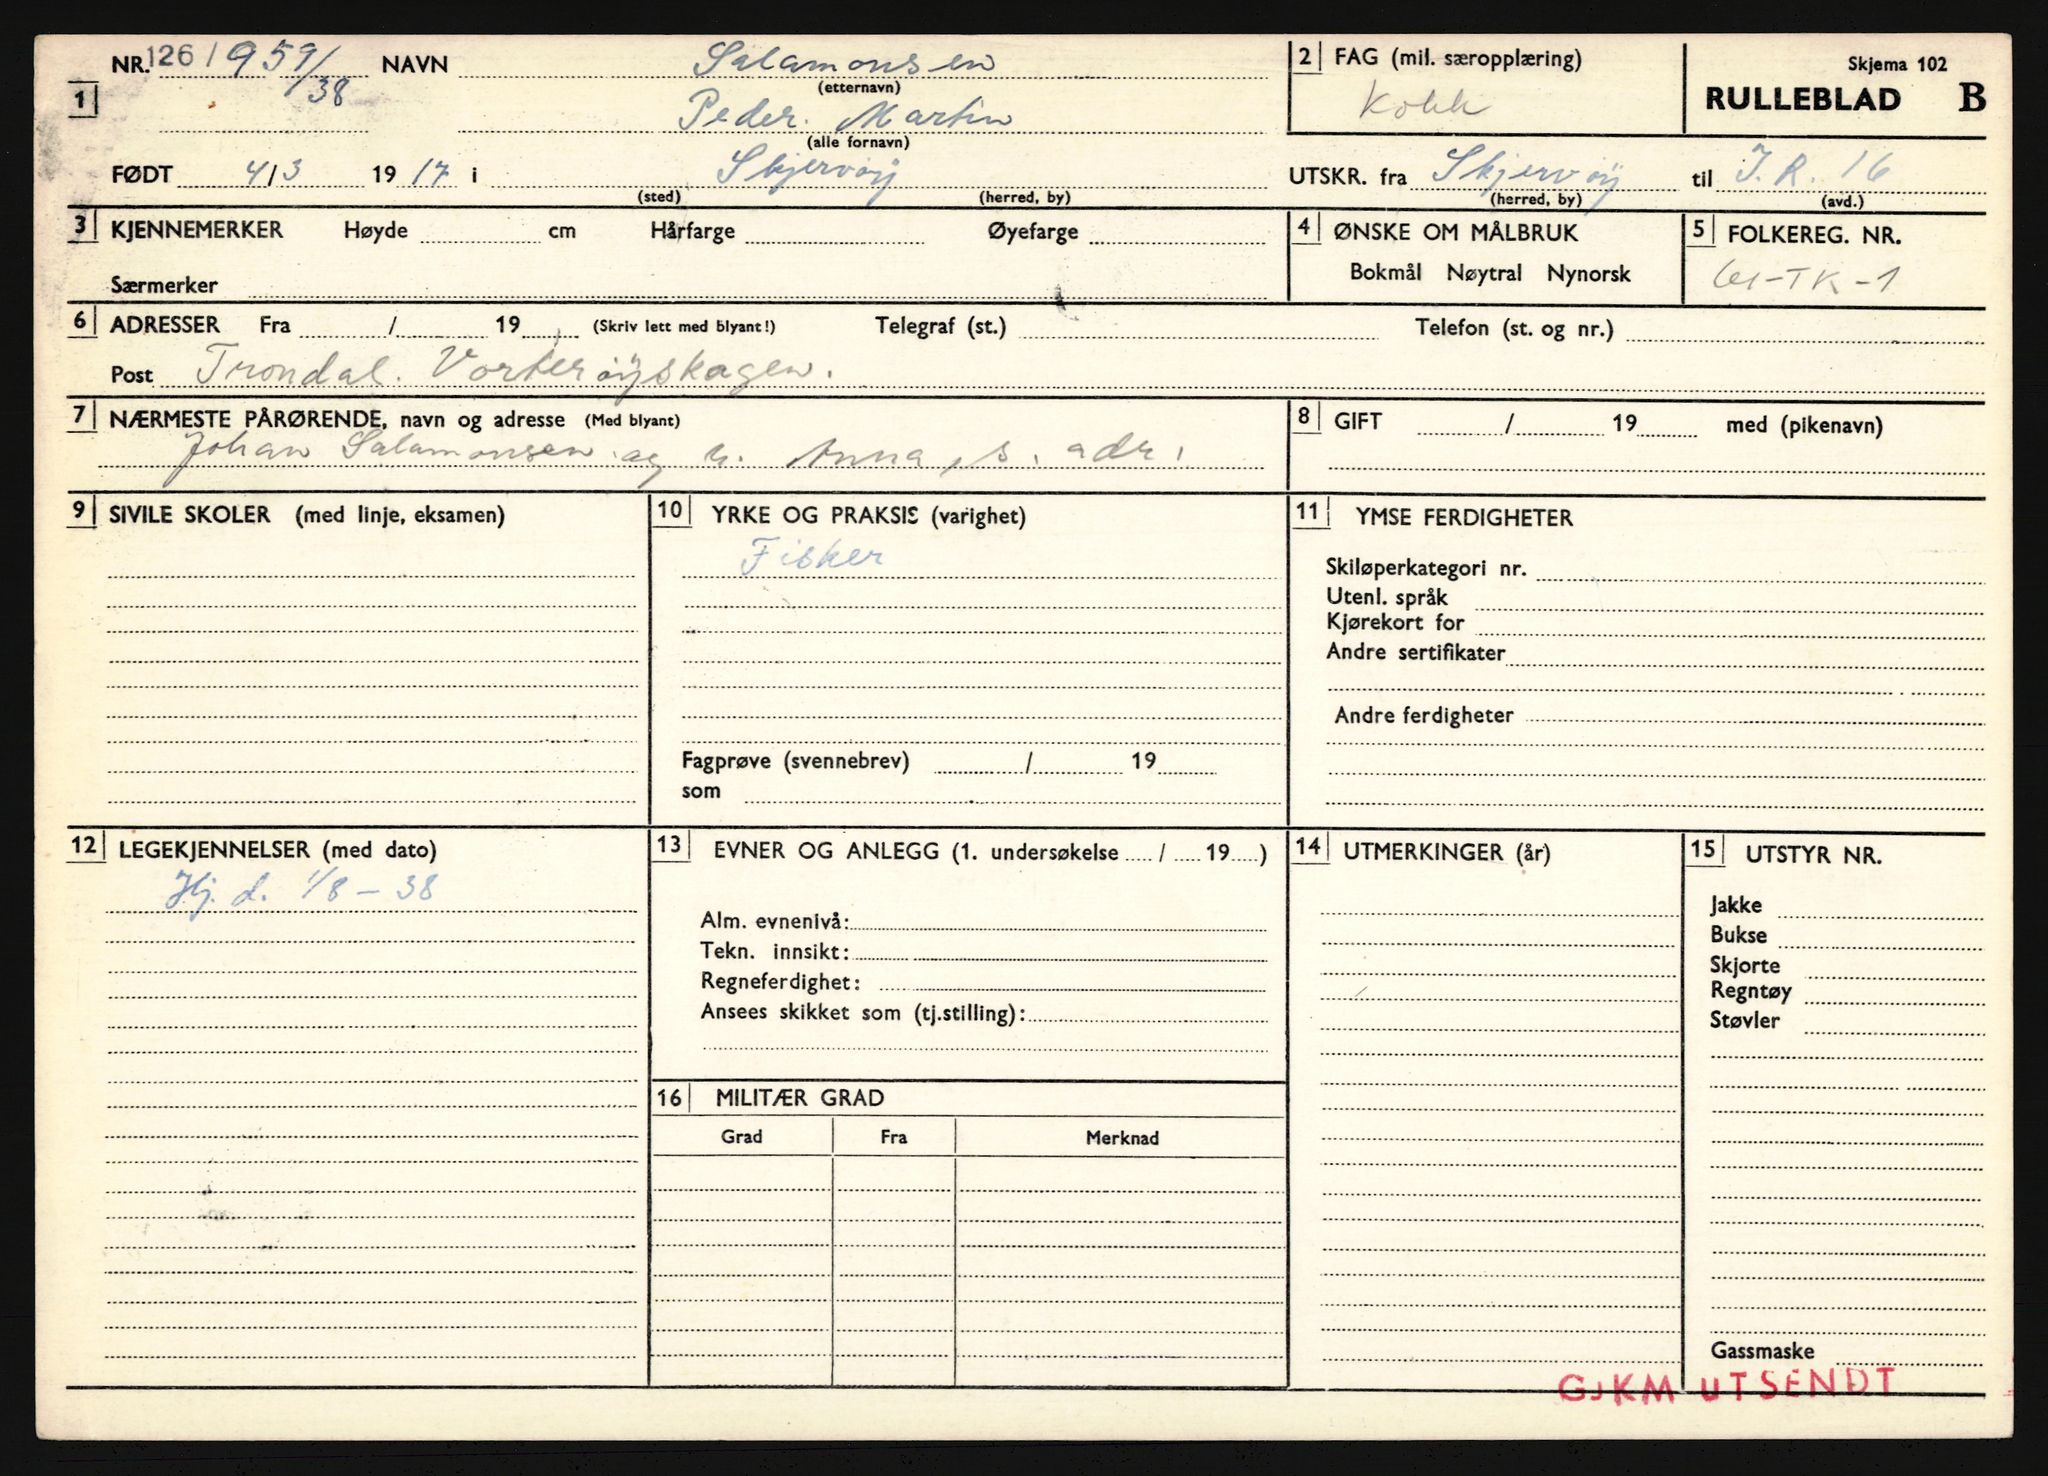 NR. 126/959/38 NAVN Salamonsen 2 FAG (mil. særopplæring) Skjema 102
(etternavn) Kokk RULLEBLAD B
1 Peder. Martin
(alle fornavn)
FØDT 4/3 1917 i Skjervøy UTSKR. fra Skjervøy til I.R. 16
(sted) (herred, by) (herred, by) (avd.)
3 KJENNEMERKER Høyde cm Hårfarge Øyefarge 4 ØNSKE OM MÅLBRUK 5 FOLKEREG. NR.
Særmerker Bokmål Nøytral Nynorsk 61-TK-1
6 ADRESSER Fra / 19 (Skriv lett med blyant!) Telegraf (st.) Telefon (st. og nr.)
Post Trondal. Vorterøyskagen.
7 NÆRMESTE PÅRØRENDE, navn og adresse (Med blyant) 8 GIFT / 19 med (pikenavn)
Johan Salamonsen og h. Anna, s. adr.
9 SIVILE SKOLER (med linje, eksamen) 10 YRKE OG PRAKSIS (varighet) 11 YMSE FERDIGHETER
Fisker
Skiløperkategori nr.
Utenl. språk
Kjørekort for
Andre sertifikater
Andre ferdigheter
Fagprøve (svennebrev) / 19
som
12 LEGEKJENNELSER (med dato) 13 EVNER OG ANLEGG (1. undersøkelse / 19 ) 14 UTMERKINGER (år) 15 UTSTYR NR.
Hj. d. 1/8-38
Jakke
Alm. evnenivå:
Bukse
Tekn. innsikt:
Skjorte
Regneferdighet:
Regntøy
Ansees skikket som (tj.stilling):
Støvler
16 MILITÆR GRAD
Grad Fra Merknad
Gassmaske
GJKM UTSENDT